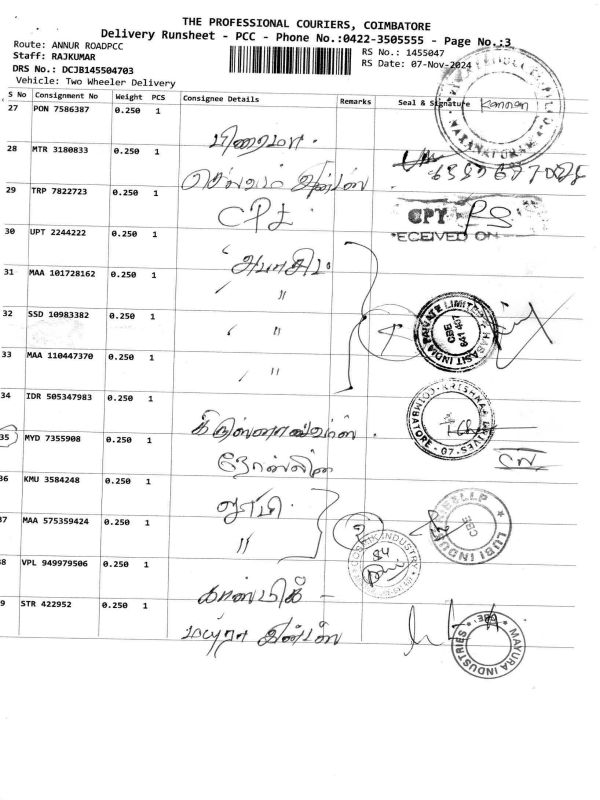 THE PROFESSIONAL COURIERS, COIMBATORE
Delivery Runsheet - PCC - Phone No.:0422-3505555 - Page No.:3
Route: ANNUR ROADPCC
RS No.: 1455047
Staff: RAJKUMAR
RS Date: 07-Nov-2024
DRS No.: DCJB145504703
Vehicle: Two Wheeler Delivery
S No Consignment No Weight PCS Consignee Details Remarks Seal & Signature
Kannan
27 PON 7586387 0.250 1
28 MTR 3180833 0.250 1
29 TRP 7822723 0.250 1 CPE
CPY
RECEIVED ON
30 UPT 2244222 0.250 1
31 MAA 101728162 0.250 1 "
32 SSD 10983382 0.250 1 "
BASIT INDIA PRIVATE LIMITED
CBE
641 407
33 MAA 110447370 0.250 1 "
34 IDR 505347983 0.250 1
COIMBATORE - 07
35 MYD 7355908 0.250 1
36 KMU 3584248 0.250 1 லூபி
37 MAA 575359424 0.250 1 "
LUBI INDUSTRIES LLP
CBE
INDUSTRY
38 VPL 949979506 0.250 1 காஸ்மிக் -
39 STR 422952 0.250 1 மயூரா இன்டஸ்
MAYURA INDUSTRIES
CBE